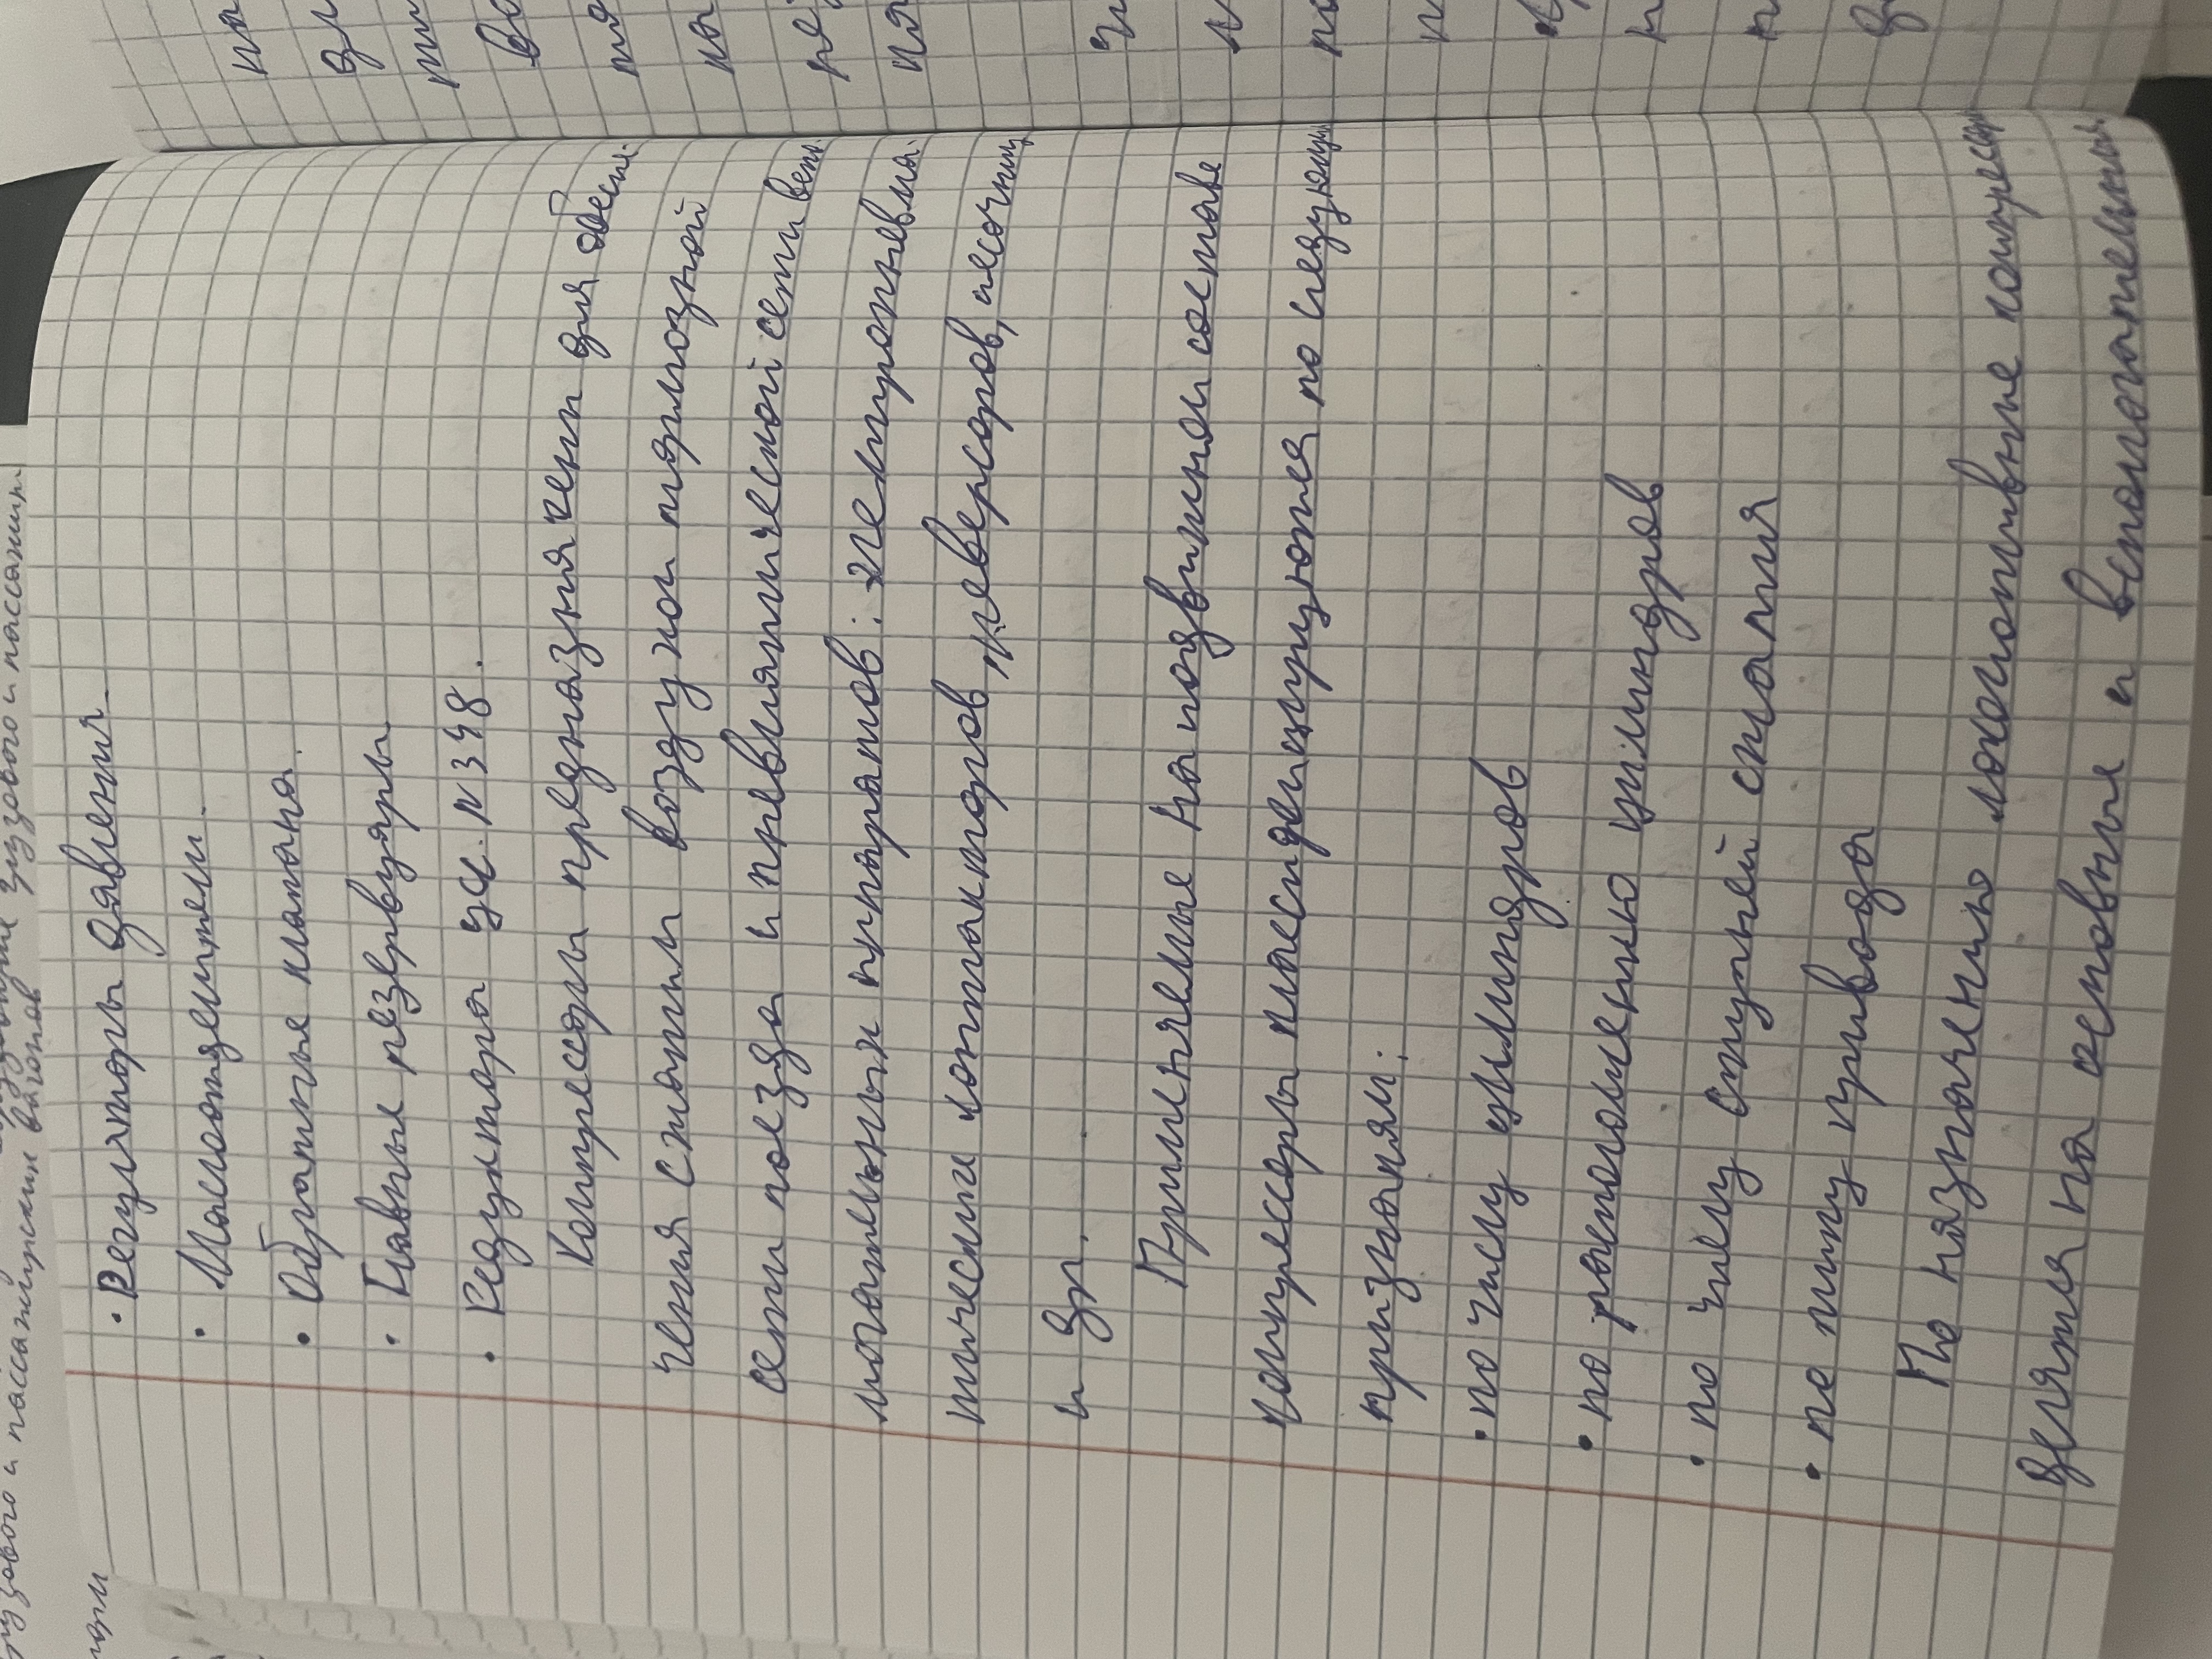 • Регуляторы давления
• Маслоотделители.
• Обратные клапана.
• Главные резервуары
• Редуктора ус. № 348.
Компрессоры предназначены для обеспе-
чения сжатым воздухом тормозной
сети поезда и пневматической сети вспо-
могательных аппаратов: электропневма-
тических контакторов, реверсоров, песочниц
и др.
Применяемые на подвижном составе
компрессоры классифицируются по следующ
признакам:
• по числу цилиндров
• по расположению цилиндров
• по числу ступеней сжатия
• по типу привода
По назначению локомотивные компрессор
делятся на основные и вспомогательные